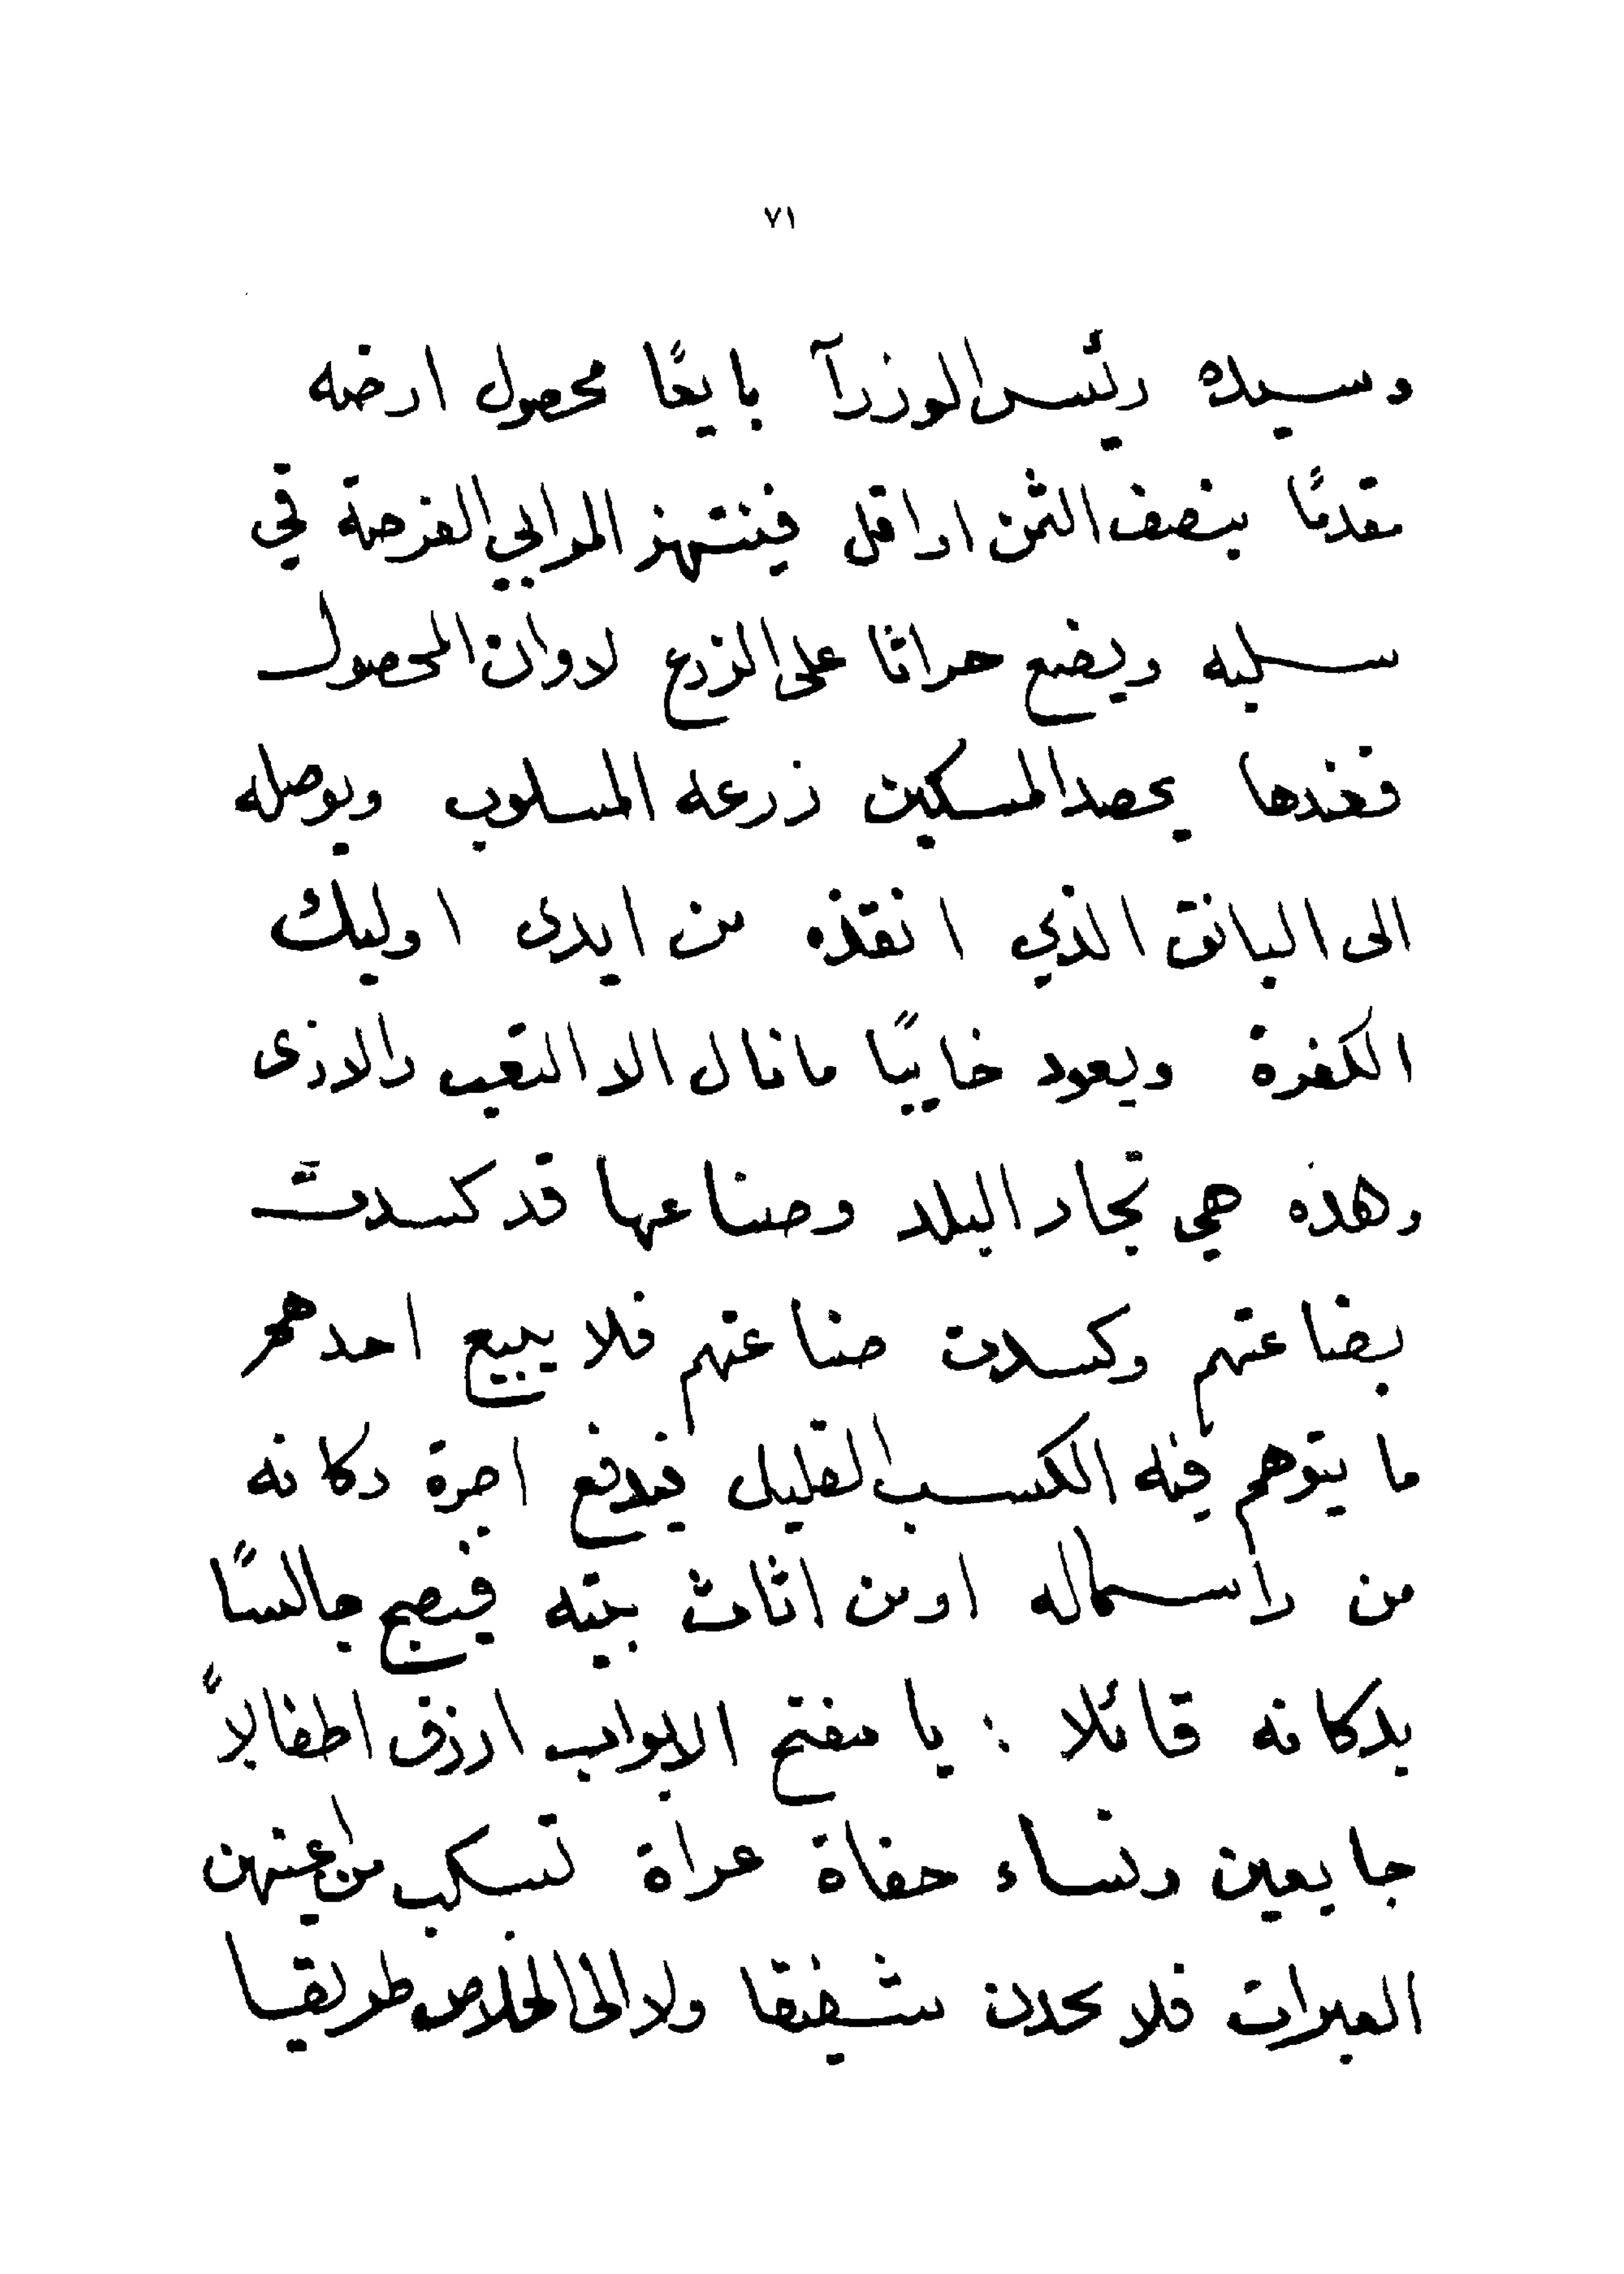 ٧١
وسيده رئيس الوزرآ بايعًا محصول ارضه
مقدمًا بنصف الثمن او اقل فينتهز المرابي الفرصة في
سلبه ويضع حراثا على الزرع لاوان المحصول
فعندها يحصد المسكين زرعه المسلوب ويوصله
الى البانق الذي انقذه من ايدى اوليك
الكفرة ويعود خايبًا ما نال الا التعب والاذى
وهذه هي تجار البلد وصناعها قد كسدت
بضاعتهم وكسدت صناعتهم فلا يبيع احدهم
ما يتوهم فيه الكسب القليل فيدفع اجرة دكانه
من راسماله او من اثاث بيته فيصبح جالسًا
بدكانه قائلا : يا مفتح الابواب ارزق اطفالاً
جايعين ونساء حفاة عراة تسكب من اعينهن
العبرات فلا يجدن شفيقا ولا الى الخلاص طريقا